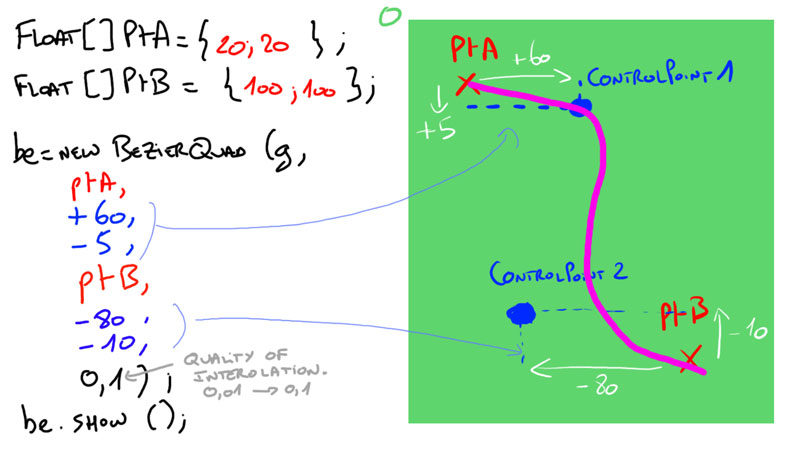 FLOAT[] PtA = { 20; 20 };
FLOAT[] PtB = { 100; 100 };
be = NEW BEZIERQUAD (g,
ptA,
+60,
-5,
ptB,
-80,
-10,
0,1);
QUALITY OF
INTEROLATION.
0,01 → 0,1
be.SHOW ();
O
PtA
+60
CONTROLPOINT 1
+5
CONTROLPOINT 2
PtB
-10
-80